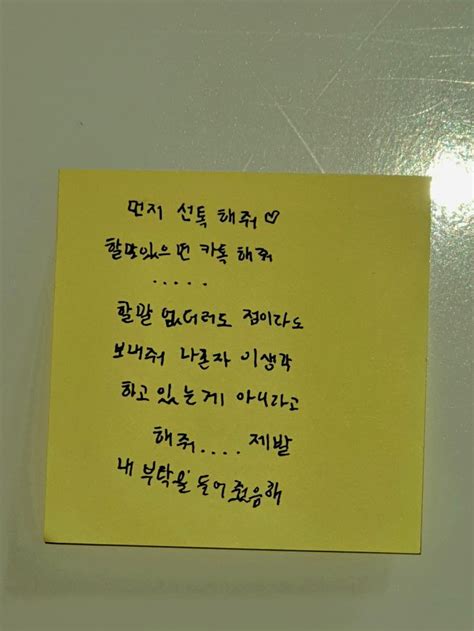 먼저 선톡 해줘 ♡
할말있으면 카톡 해줘
.....
할말 없더라도 점이라도
보내줘 나혼자 이생각
하고 있는게 아니라고
해줘.... 제발
내 부탁을 들어줬음해